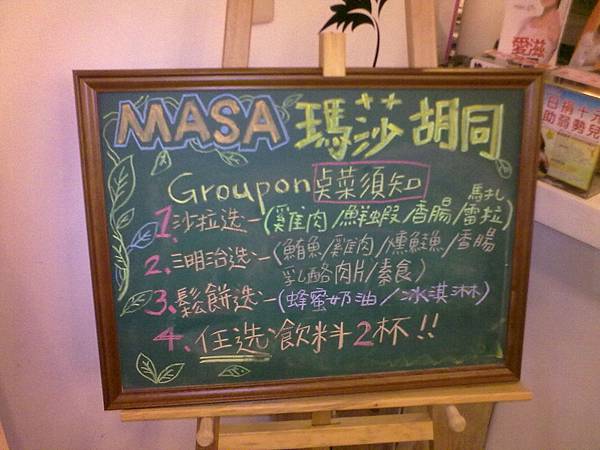 MASA 瑪莎 胡同
Groupon 桌菜須知
1. 沙拉选一(雞肉/鮮蝦/香腸/馬扎雷拉)
2. 三明治选一(鮪魚/雞肉/燻鮭魚/香腸
乳酪肉片/素食)
3. 鬆餅选一(蜂蜜奶油/冰淇淋)
4. 任选飲料2杯!!
愛滋
日捐十元
助弱勢兒